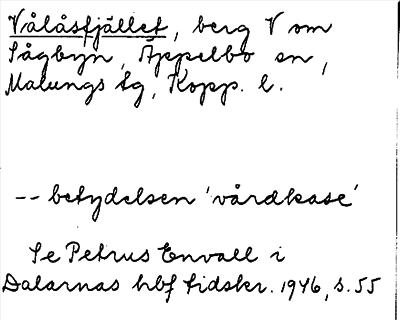 Vålåsfjället, berg V om
Sågbyn, Äppelbo sn,
Malungs tg, Kopp. l.
-- betydelsen 'vårdkase'
Se Petrus Envall i
Dalarnas hbf tidskr. 1946, s. 55